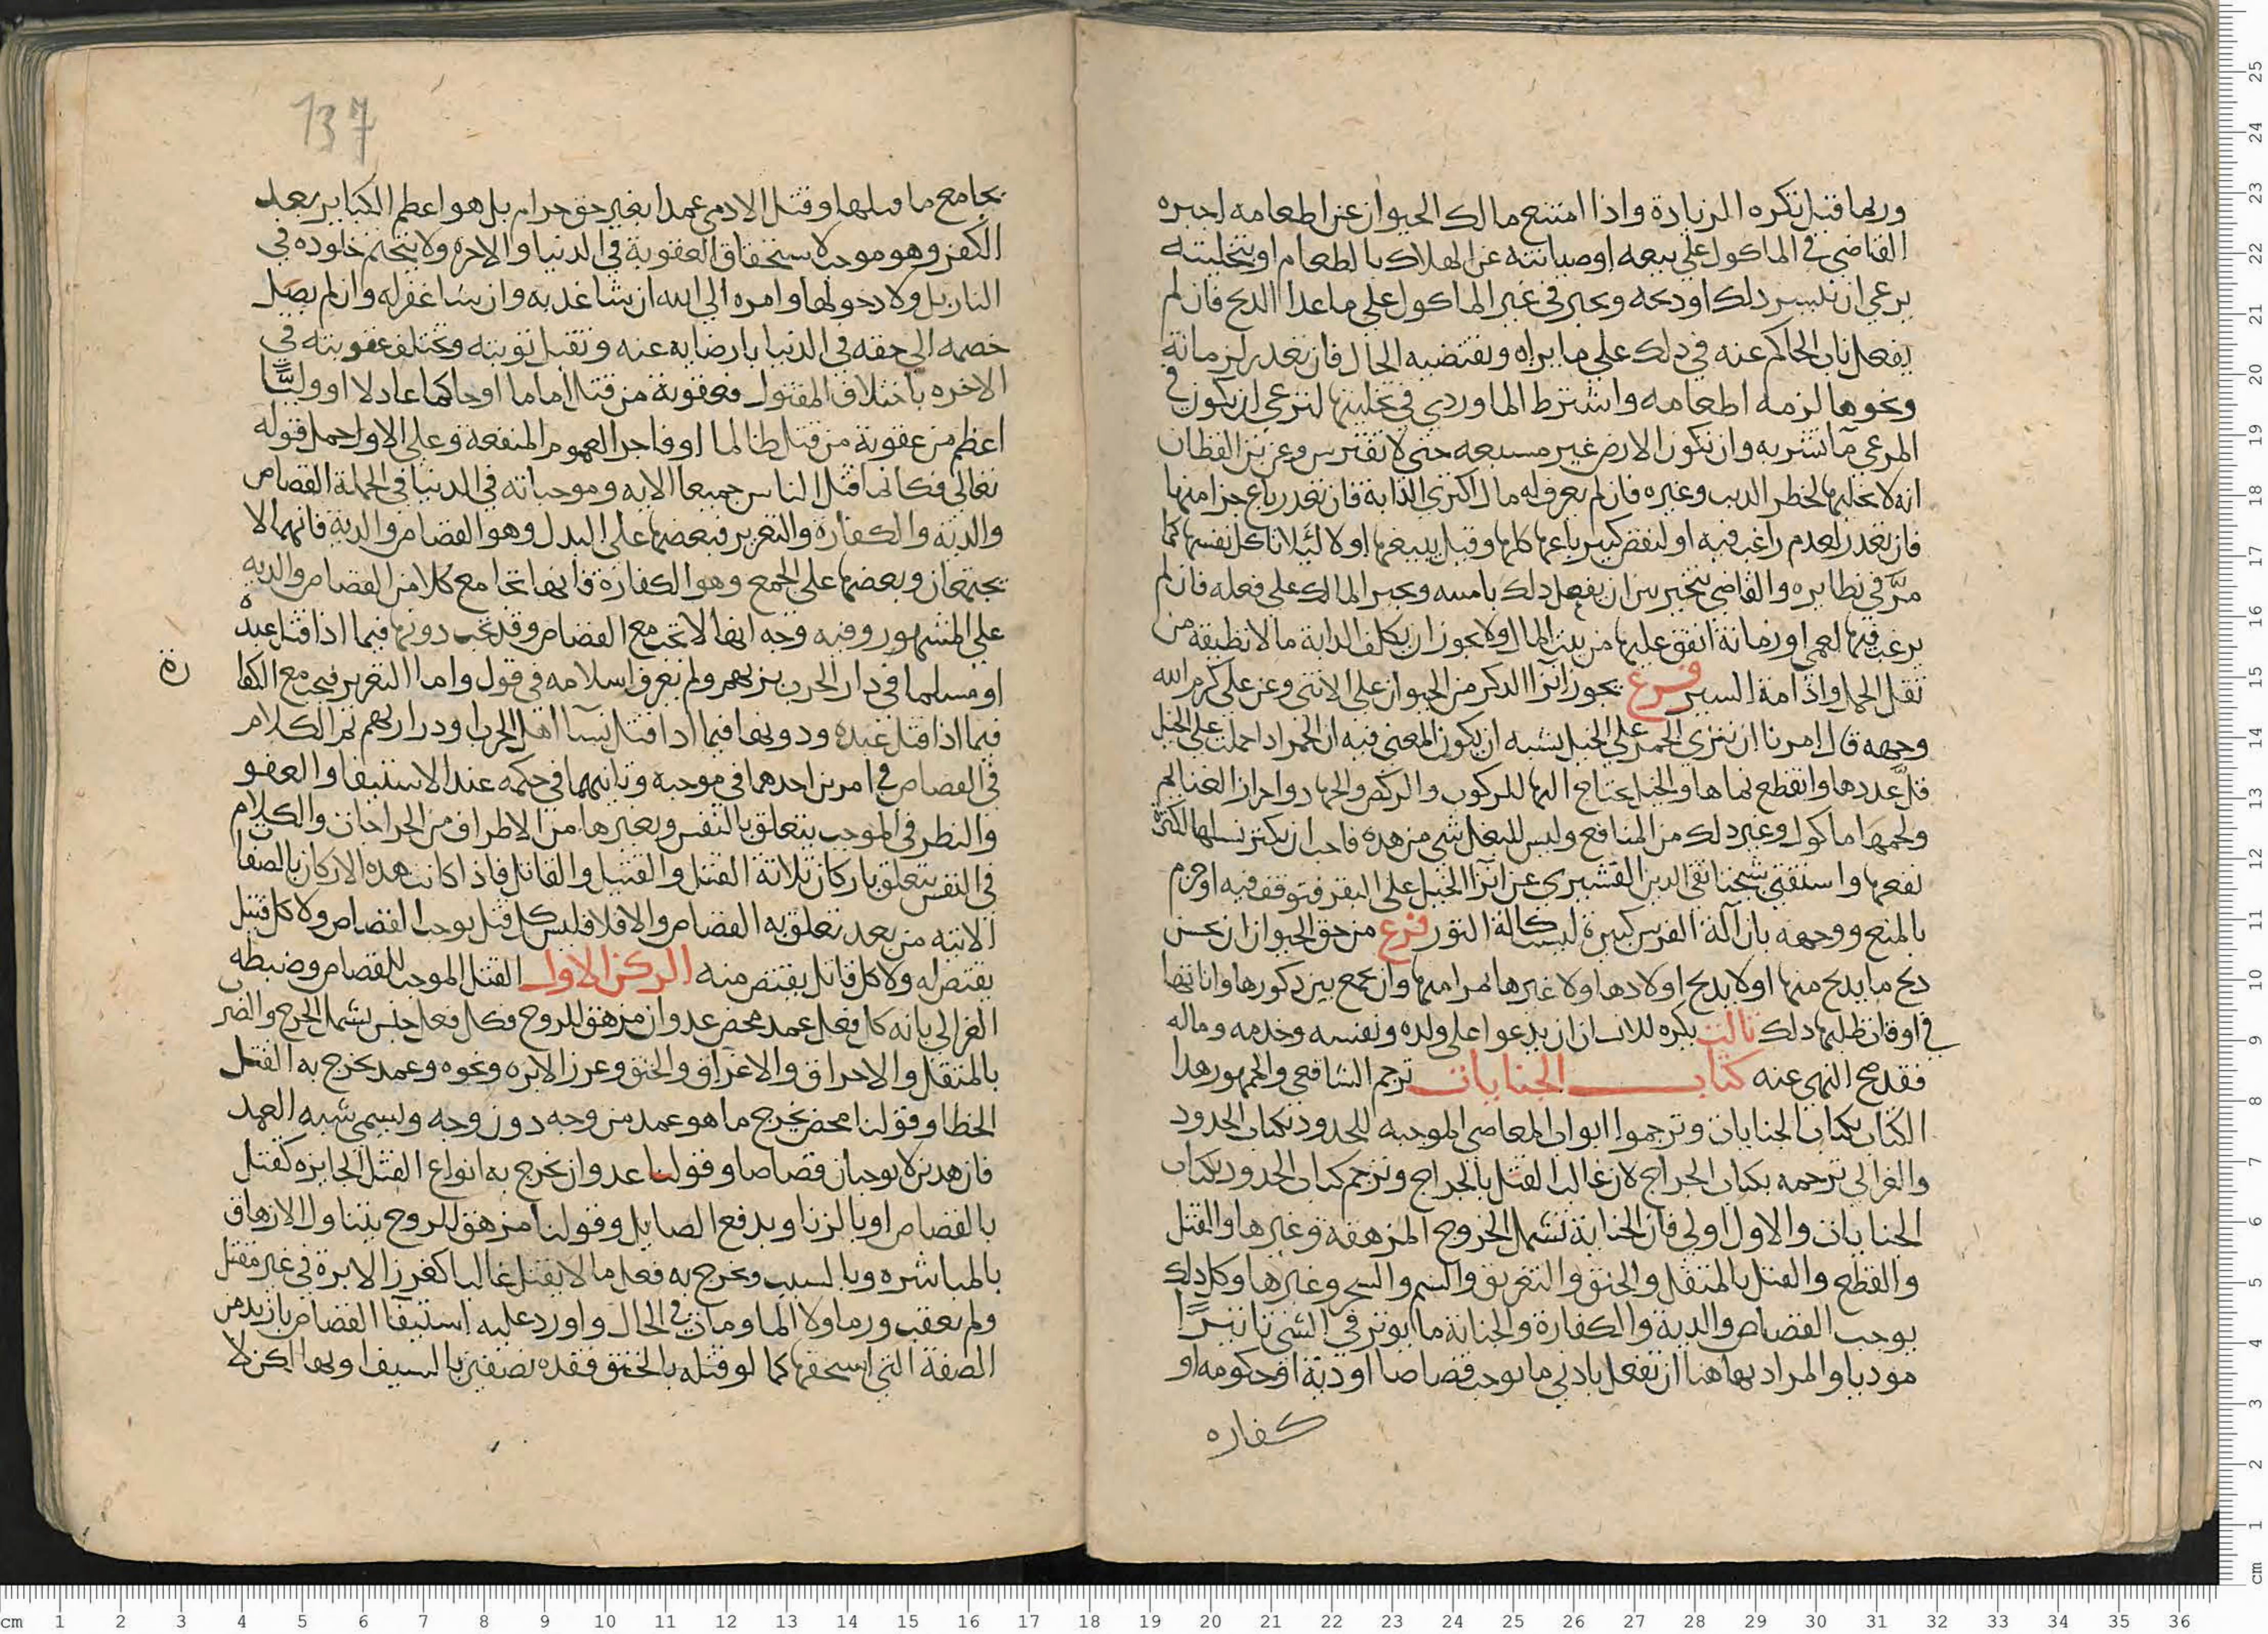 وربما قيل تكره الزيادة واذا امتنع مالك الحيوان عن اطعامه اجبره
القاضي في الماكول على بيعه اوصيانته عن الهلاك بالطعام اوتخليته
يرعى ان تيسر ذلك اوذبحه ويجبر في غير الماكول على ما عدا الذبح فان لم
يفعل ناب الحاكم عنه في ذلك على ما يراه ويقتضيه الحال فان تعذر لزمانة
ونحوها لزمه اطعامه واشترط الماوردي في تخليتها لترعى ان يكون في
المرعى ما تشربه وان تكون الارض غير مسبعه حتى لا تفترس وعن بن القطان
انه لا تخليها لخطر الذيب وغيره فان لم يعرف له مال اكرى الدابة فان تعذر باع جزا منها
فان تعذر لعدم راغب فيه او لنقص كبير باعها كلها وقيل يبيعها اولا ليلا تاكل نفسها كما
مرّ في نظايره والقاضي يتخير بين ان يفعل ذلك بامنه ويجبر المالك على فعله فان لم
يرغب فيها لعمي اوزمانة انفق عليها من بيت المال ولا يجوز ان يكلف الدابة ما لا تطيقه من
ثقل الحمل وادامة السير فرع يجوز انزا الذكر من الحيوان على الانثى وعن على كرم الله
وجهه قال امرنا ان ننزي الحمر على الخيل يشبه ان يكون المعنى فيه ان الحمر اذا حملت على الخيل
قلّ عددها وانقطع نماها والخيل يحتاج اليها للركوب والركض والجهاد واحراز الغنايم
ولحمها ماكول وغير ذلك من المنافع وليس للبغل شي من هذه فاحب ان يكثر نسلها لكثرة
نفعها واستفتي شيخنا تقي الدين القشيري عن انزا الخيل على البقر فتوقف فيه اوجزم
بالمنع ووجهه بان آلة الفرس كبيرة ليست كالة الثور فرع من حق الحيوان ان يحسن
ذبح ما يذبح منها اولا يذبح اولادها ولا غيرها بمرامنها وان يجمع بين ذكورها واناثها
في اوقات طلبها ذلك ثالث يكره للانسان ان يدعوا على ولده ونفسه وخدمه وماله
فقد صح النهي عنه كتاب الجنايات ترجم الشافعي والجمهور هذا
الكتاب بكتاب الجنايات وترجموا ابواب المعاصي الموجبه للحدود بكتاب الحدود
والغزالي ترجمه بكتاب الجراح لان غالب القتل بالجراح وترجم كتاب الحدود بكتاب
الجنايات والاول اولى فان الجناية تشمل الخروج المزهقة وغيرها والقتل
والقطع والقتل بالمثقل والخنق والتغريق والسم والسحر وغيرها وكل ذلك
يوجب القصاص والدية والكفارة والجناية ما ايوثر في الشي تاثيرًا
موذيا والمراد بها هنا ان تفعل بادني ما يوجب قصاصا اودية اوحكومه او
كفاره
137
يجامع ما قبلها وقتل الادمي عمدا بغير حق حرام بل هو اعظم الكباير بعد
الكفر وهو موجب لاستحقاق العقوبة في الدنيا والاخرة ولا يتحتم خلوده في
النار بل ولا دخولها وامره الى الله ان شا عذبه وان شا غفر له وان لم يصل
خصمه الى حقه في الدنيا بارضايه عنه وتقبل توبته وتختلف عقوبته في
الاخره باختلاف المقتول فعقوبة من قتل اماما اوحاكما عادلا او وليًّا
اعظم من عقوبة من قتل ظالما او فاجرا لعموم المنفعة وعلى الاول حمل قوله
تعالى فكانما قتل الناس جميعا الايه وموجباته في الدنيا في الجملة القصاص
والدية والكفارة والتعزير فبعضها على البدل وهو القصاص والدية فانهما لا
يجتمعان وبعضها على الجمع وهو الكفارة فانها تجامع كلا من القصاص والديه
على المشهور وفيه وجه انها لا تجب مع القصاص وقد تجب دونها فيما اذا قتل عبده
اومسلما في دار الحرب بزيهم ولم يعرف اسلامه في قول واما التعزير فيجب مع الكفا
رة
فيما اذا قتل عبده ودونها فيما اذا قتل نسا اهل الحرب وذراريهم ثم الكلام
في القصاص في امرين احدهما في موجبه وثانيهما في حكمه عند الاستيفا والعفو
والنظر في الموجب يتعلق بالنفس وبغيرها من الاطراف من الجراحات والكلام
في النفس يتعلق باركان ثلاثة القتل والقتيل والقاتل فاذا كانت هذه الاركان بالصفات
الاتيه من بعد تعلق به القصاص والا فلا فليس كل قتل يوجب القصاص ولا كل قتيل
يقتص له ولا كل قاتل يقتص منه الركن الاول القتل الموجب للقصاص وضبطه
الغزالي بانه كل فعل عمد محض عدوان مزهق للروح فكل فعل جنس يشمل الجرح والضر
بالمثقل والاحراق والاغراق والخنق وغرز الابره ونحوه وعمد يخرج به القتل
الخطا وقولنا محض يخرج ما هو عمد من وجه دون وجه ويسمى شبه العمد
فان هذين لا يوجبان قصاصا وقولنا عدوان يخرج به انواع القتل الجايزه كقتل
بالقصاص اوبالزنا وبدفع الصايل وقولنا مزهق للروح يتناول الازهاق
بالمباشره وبالسبب ويخرج به فعل ما لا يقتل غالبا كغرز الابرة في غير مقتل
ولم يعقب ورما ولا الما ومات في الحال واورد عليه استيفا القصاص بازيد من
الصفة التي استحقها كما لو قتله بالخنق فقده نصفين بالسيف اوبها لكن لا